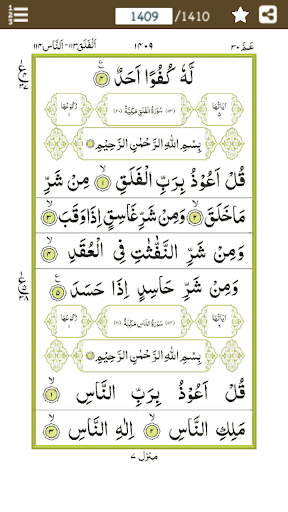 1409 /1410
اَلْفَلَق ۱۱۳-اَلنَّاس ۱۱۴ ۱۴۰۹ عَمَّ ۳۰
لَّهٗ كُفُوًا اَحَدٌ ۴
اٰيَاتُهَا ۵ سُوْرَةُ الْفَلَقِ مَكِّيَّةٌ رُكُوْعُهَا ۱
بِسْمِ اللّٰهِ الرَّحْمٰنِ الرَّحِيْمِ
قُلْ اَعُوْذُ بِرَبِّ الْفَلَقِ ۱ مِنْ شَرِّ
مَاخَلَقَ ۲ وَمِنْ شَرِّ غَاسِقٍ اِذَا وَقَبَ ۳
وَمِنْ شَرِّ النَّفّٰثٰتِ فِى الْعُقَدِ ۴
وَمِنْ شَرِّ حَاسِدٍ اِذَا حَسَدَ ۵
اٰيَاتُهَا ۶ سُوْرَةُ النَّاسِ مَكِّيَّةٌ رُكُوْعُهَا ۱
بِسْمِ اللّٰهِ الرَّحْمٰنِ الرَّحِيْمِ
قُلْ اَعُوْذُ بِرَبِّ النَّاسِ ۱
مَلِكِ النَّاسِ ۲ اِلٰهِ النَّاسِ ۳
منزل ۷